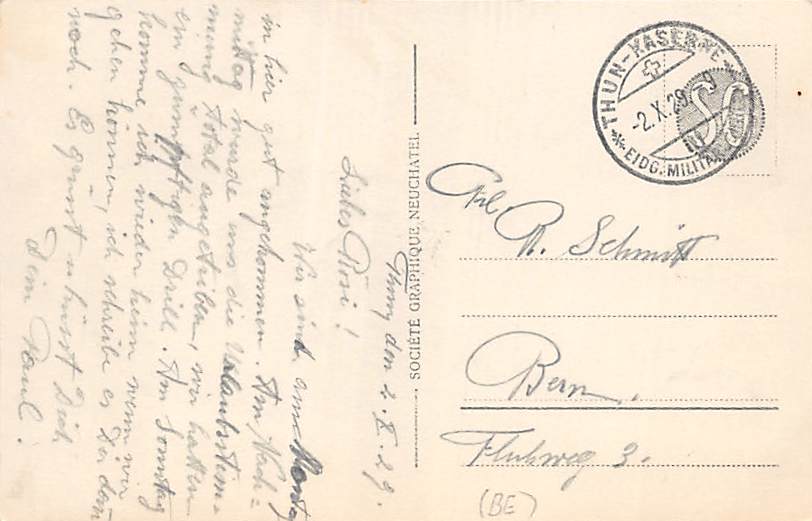 Thun, den 2.X.29.
Liebes Rösi!
Wir sind am Montag
in hier gut angekommen. Am Nach=
mittag wurde uns die Urlaubsstim=
mung total ausgetrieben, wir hatten
ein zünftigen Drill. Am Sonntag
komme ich wieder heim wenn wir
gehen können, ich schreibe es Dir dann
noch. Es grüsst u küsst Dich
Dein Paul.
SOCIÉTÉ GRAPHIQUE, NEUCHATEL
THUN-KASERNE
-2.X.29 9
EIDG. MILITÄR
Frl. R. Schmitt
Bern.
Fluhweg 3.
(BE)